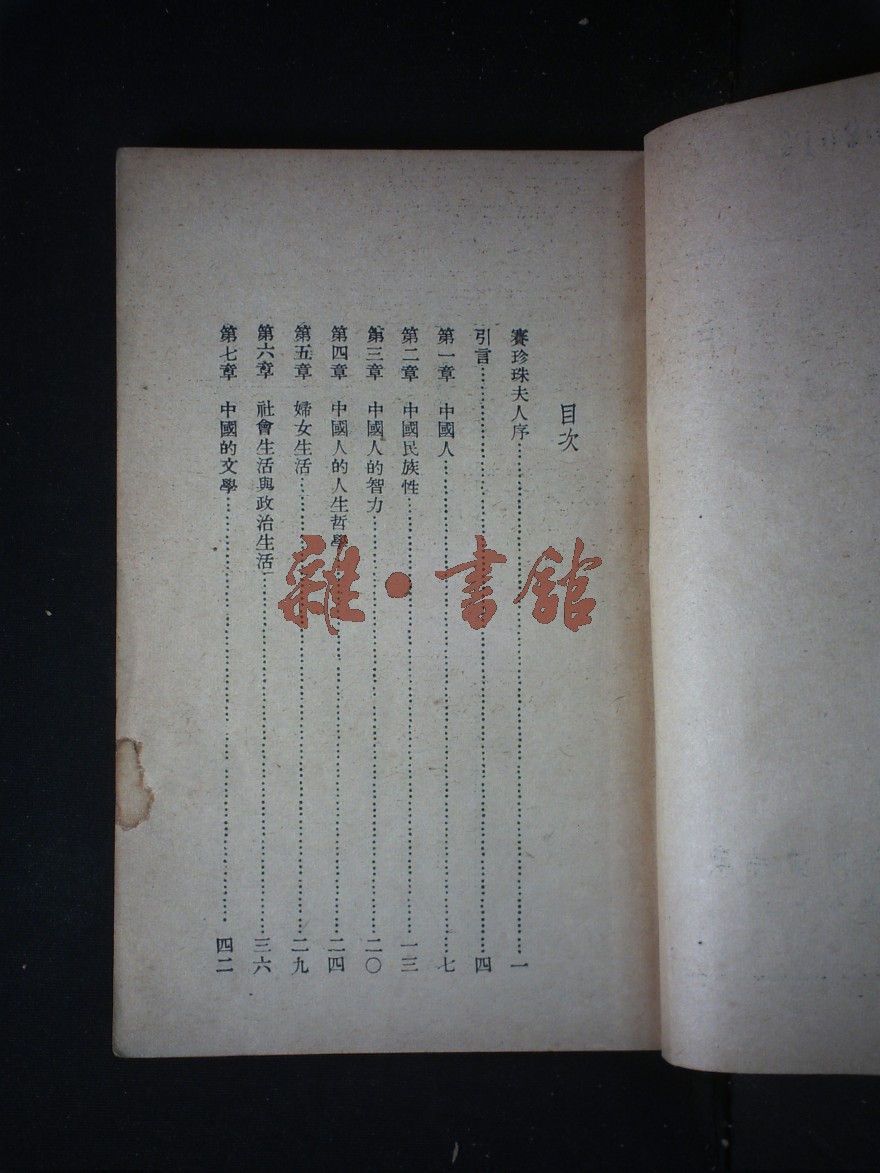 目次
賽珍珠夫人序……一
引言……四
第一章　中國人……七
第二章　中國民族性……一三
第三章　中國人的智力……二〇
第四章　中國人的人生哲學……二四
第五章　婦女生活……二九
第六章　社會生活與政治生活……三六
第七章　中國的文學……四二
雜·書館